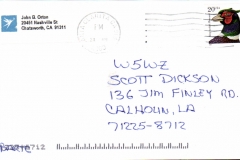 John B. Orton
20491 Nashville St
Chatsworth, CA 91311
29
W5WZ
SCOTT DICKSON
136 JIM FINLEY RD.
CALHOUN, LA
71225-8712